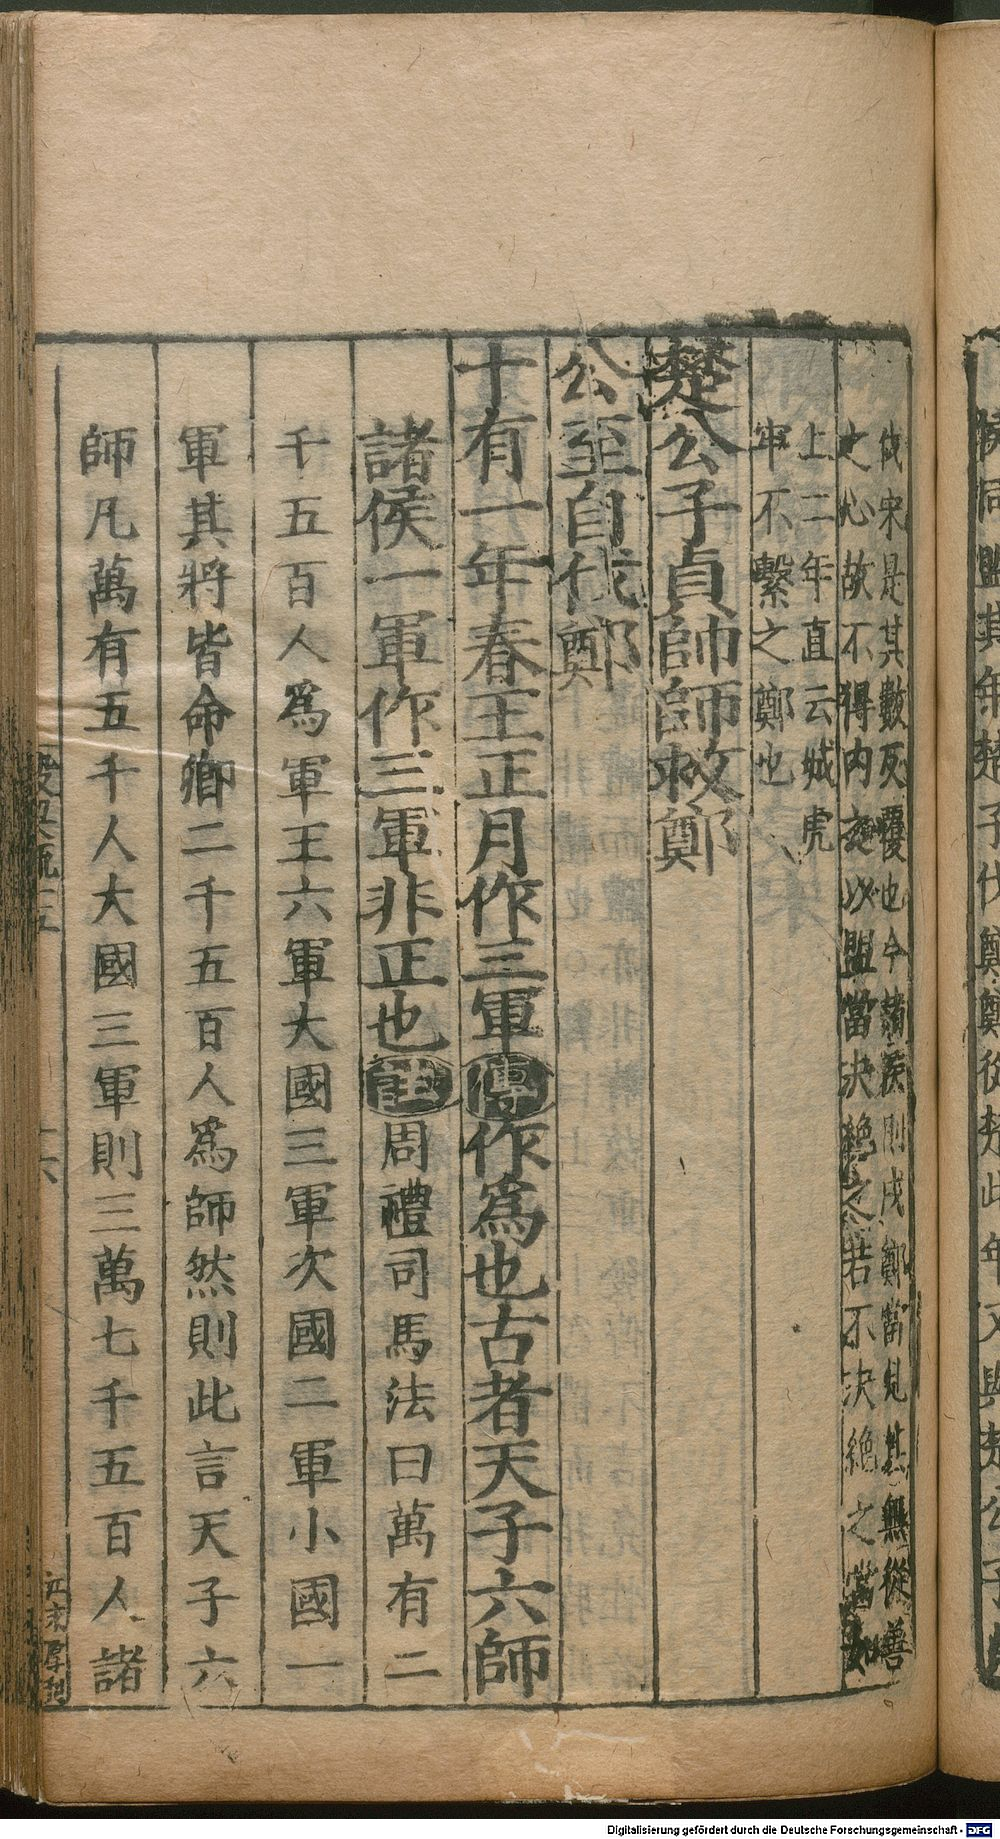 伐宋是其數反覆也今諸侯則戍鄭當見其無從善
之心故不得内之以盟當決絶之若不決絶之當如
上二年直云城虎
牢不繫之鄭也
楚公子貞帥師救鄭
公至自伐鄭
十有一年春王正月作三軍傳作爲也古者天子六師
諸侯一軍作三軍非正也註周禮司馬法曰萬有二
千五百人爲軍王六軍大國三軍次國二軍小國一
軍其將皆命卿二千五百人爲師然則此言天子六
師凡萬有五千人大國三軍則三萬七千五百人諸
十六
侯同盟其年楚子伐鄭鄭從楚此年又與楚公子
Digitalisierung gefördert durch die Deutsche Forschungsgemeinschaft - DFG